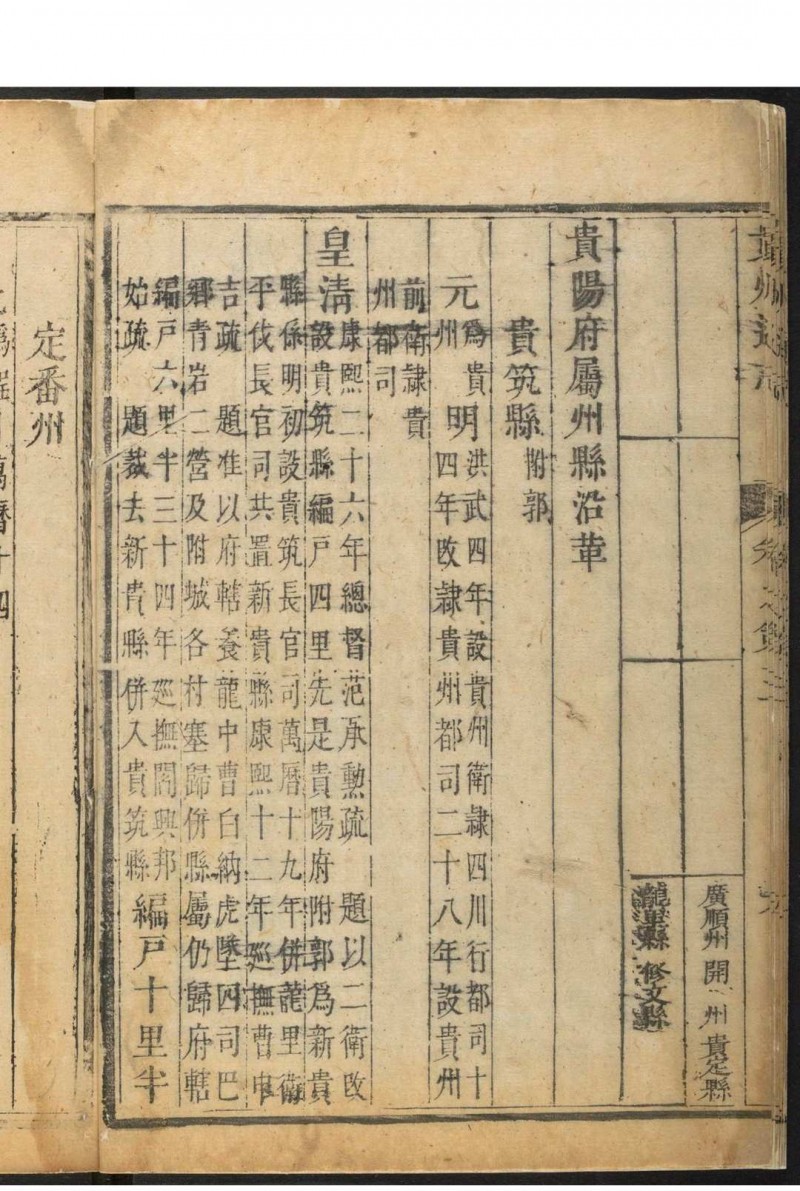 貴州通志
廣順州 開州 貴定縣
龍里縣 修文縣
貴陽府屬州縣沿革
貴筑縣 附郭
元 為貴州 明 洪武四年設貴州衛隸四川行都司十
四年改隸貴州都司二十八年設貴州
前衛隸貴
州都司
皇清 康熙二十六年總督范承勳疏 題以二衛改
設貴筑縣編戶四里先是貴陽府附郭為新貴
縣係明初設貴筑長官司萬曆十九年併龍里衛
平伐長官司共置新貴縣康熙十二年巡撫曹申
吉疏 題准以府轄養龍中曹白納虎墜四司巴
鄉青岩二營及附城各村塞歸併縣屬仍歸府轄
編戶六里半三十四年巡撫閻興邦
始疏 題裁去新貴縣併入貴筑縣 編戶十里半
定番州
萬曆十四